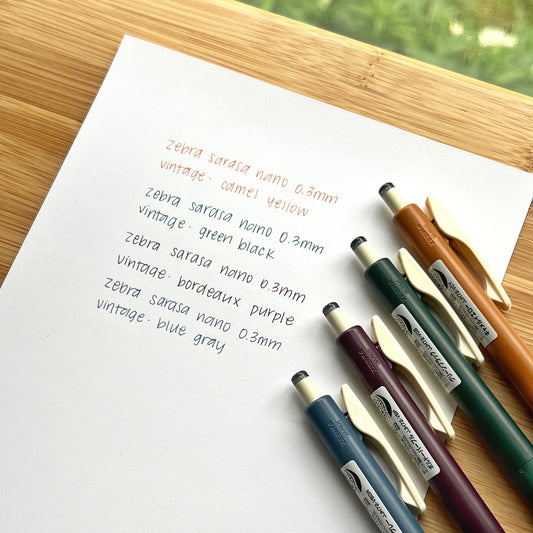 zebra sarasa nano 0.3mm
vintage · camel yellow
zebra sarasa nano 0.3mm
vintage · green black
zebra sarasa nano 0.3mm
vintage · bordeaux purple
zebra sarasa nano 0.3mm
vintage · blue gray